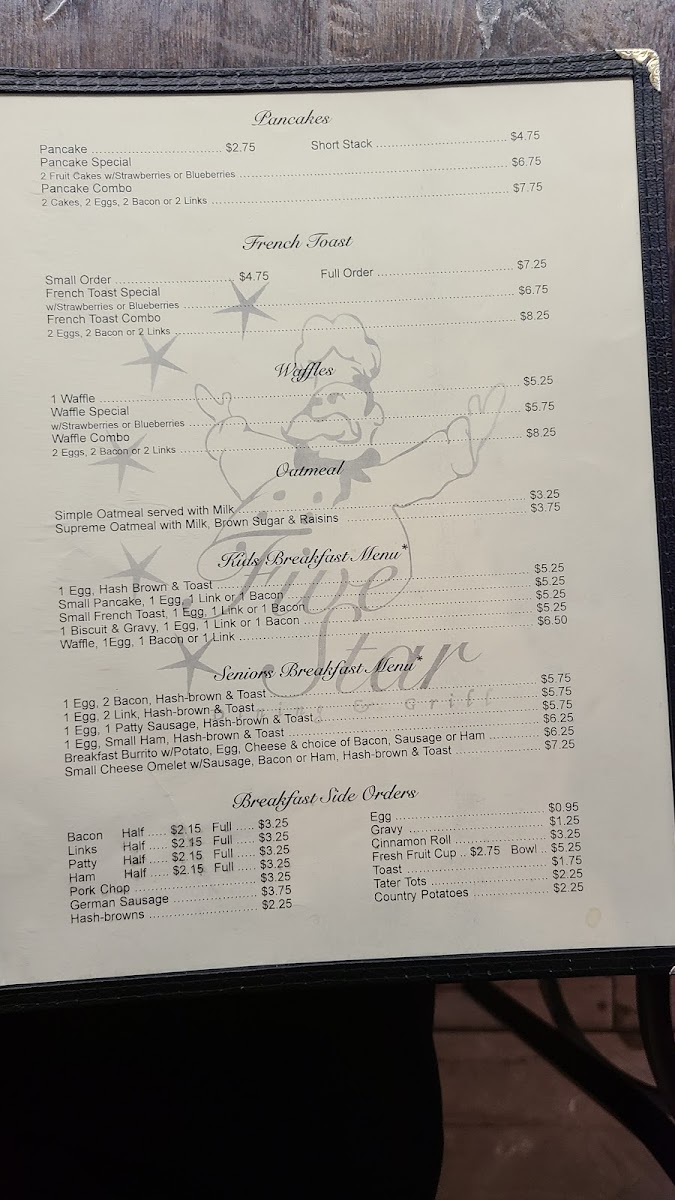 Pancakes
Pancake ............ $2.75 Short Stack ............ $4.75
Pancake Special
2 Fruit Cakes w/Strawberries or Blueberries ............ $6.75
Pancake Combo
2 Cakes, 2 Eggs, 2 Bacon or 2 Links ............ $7.75
French Toast
Small Order ............ $4.75 Full Order ............ $7.25
French Toast Special
w/Strawberries or Blueberries ............ $6.75
French Toast Combo
2 Eggs, 2 Bacon or 2 Links ............ $8.25
Waffles
1 Waffle ............ $5.25
Waffle Special
w/Strawberries or Blueberries ............ $5.75
Waffle Combo
2 Eggs, 2 Bacon or 2 Links ............ $8.25
Oatmeal
Simple Oatmeal served with Milk ............ $3.25
Supreme Oatmeal with Milk, Brown Sugar & Raisins ............ $3.75
Kids Breakfast Menu*
1 Egg, Hash Brown & Toast ............ $5.25
Small Pancake, 1 Egg, 1 Link or 1 Bacon ............ $5.25
Small French Toast, 1 Egg, 1 Link or 1 Bacon ............ $5.25
1 Biscuit & Gravy, 1 Egg, 1 Link or 1 Bacon ............ $5.25
Waffle, 1Egg, 1 Bacon or 1 Link ............ $6.50
Five
Star
Dining & Grill
Seniors Breakfast Menu*
1 Egg, 2 Bacon, Hash-brown & Toast ............ $5.75
1 Egg, 2 Link, Hash-brown & Toast ............ $5.75
1 Egg, 1 Patty Sausage, Hash-brown & Toast ............ $5.75
1 Egg, Small Ham, Hash-brown & Toast ............ $6.25
Breakfast Burrito w/Potato, Egg, Cheese & choice of Bacon, Sausage or Ham ............ $6.25
Small Cheese Omelet w/Sausage, Bacon or Ham, Hash-brown & Toast ............ $7.25
Breakfast Side Orders
Bacon Half ..... $2.15 Full ..... $3.25
Links Half ..... $2.15 Full ..... $3.25
Patty Half ..... $2.15 Full ..... $3.25
Ham Half ..... $2.15 Full ..... $3.25
Pork Chop ............ $3.25
German Sausage ............ $3.75
Hash-browns ............ $2.25
Egg ............ $0.95
Gravy ............ $1.25
Cinnamon Roll ............ $3.25
Fresh Fruit Cup .. $2.75 Bowl .. $5.25
Toast ............ $1.75
Tater Tots ............ $2.25
Country Potatoes ............ $2.25